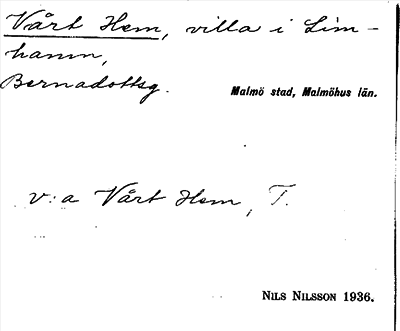 Vårt Hem, villa i Lim-
hamn,
Bernadottsg.
Malmö stad, Malmöhus län.
v: a Vårt Hem, T.
NILS NILSSON 1936.